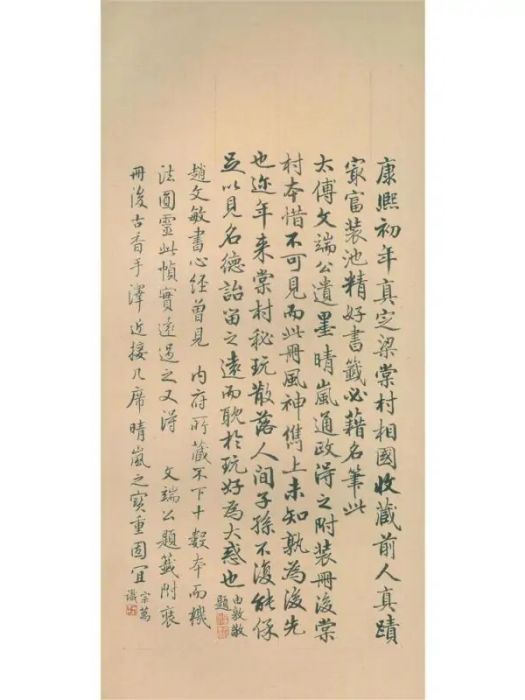 康熙初年真定梁棠村相國收藏前人真蹟
宷富裝池精好書籤必藉名筆此
太傅文端公遺墨晴嵐通政得之附裝冊後棠
村本惜不可見而此冊風神儁上未知孰為後先
也近年来棠村秘玩散落人間子孫不復能保
足以見名德詒留之遠而耽於玩好為大惑也
由敦敬
題
趙文敏書心經曾見 内府所藏不下十數本而機
法圓靈此幀實遠過之又得 文端公題籤附裒
冊後古香手澤近接几席晴嵐之寶重固宜
宗萬
識